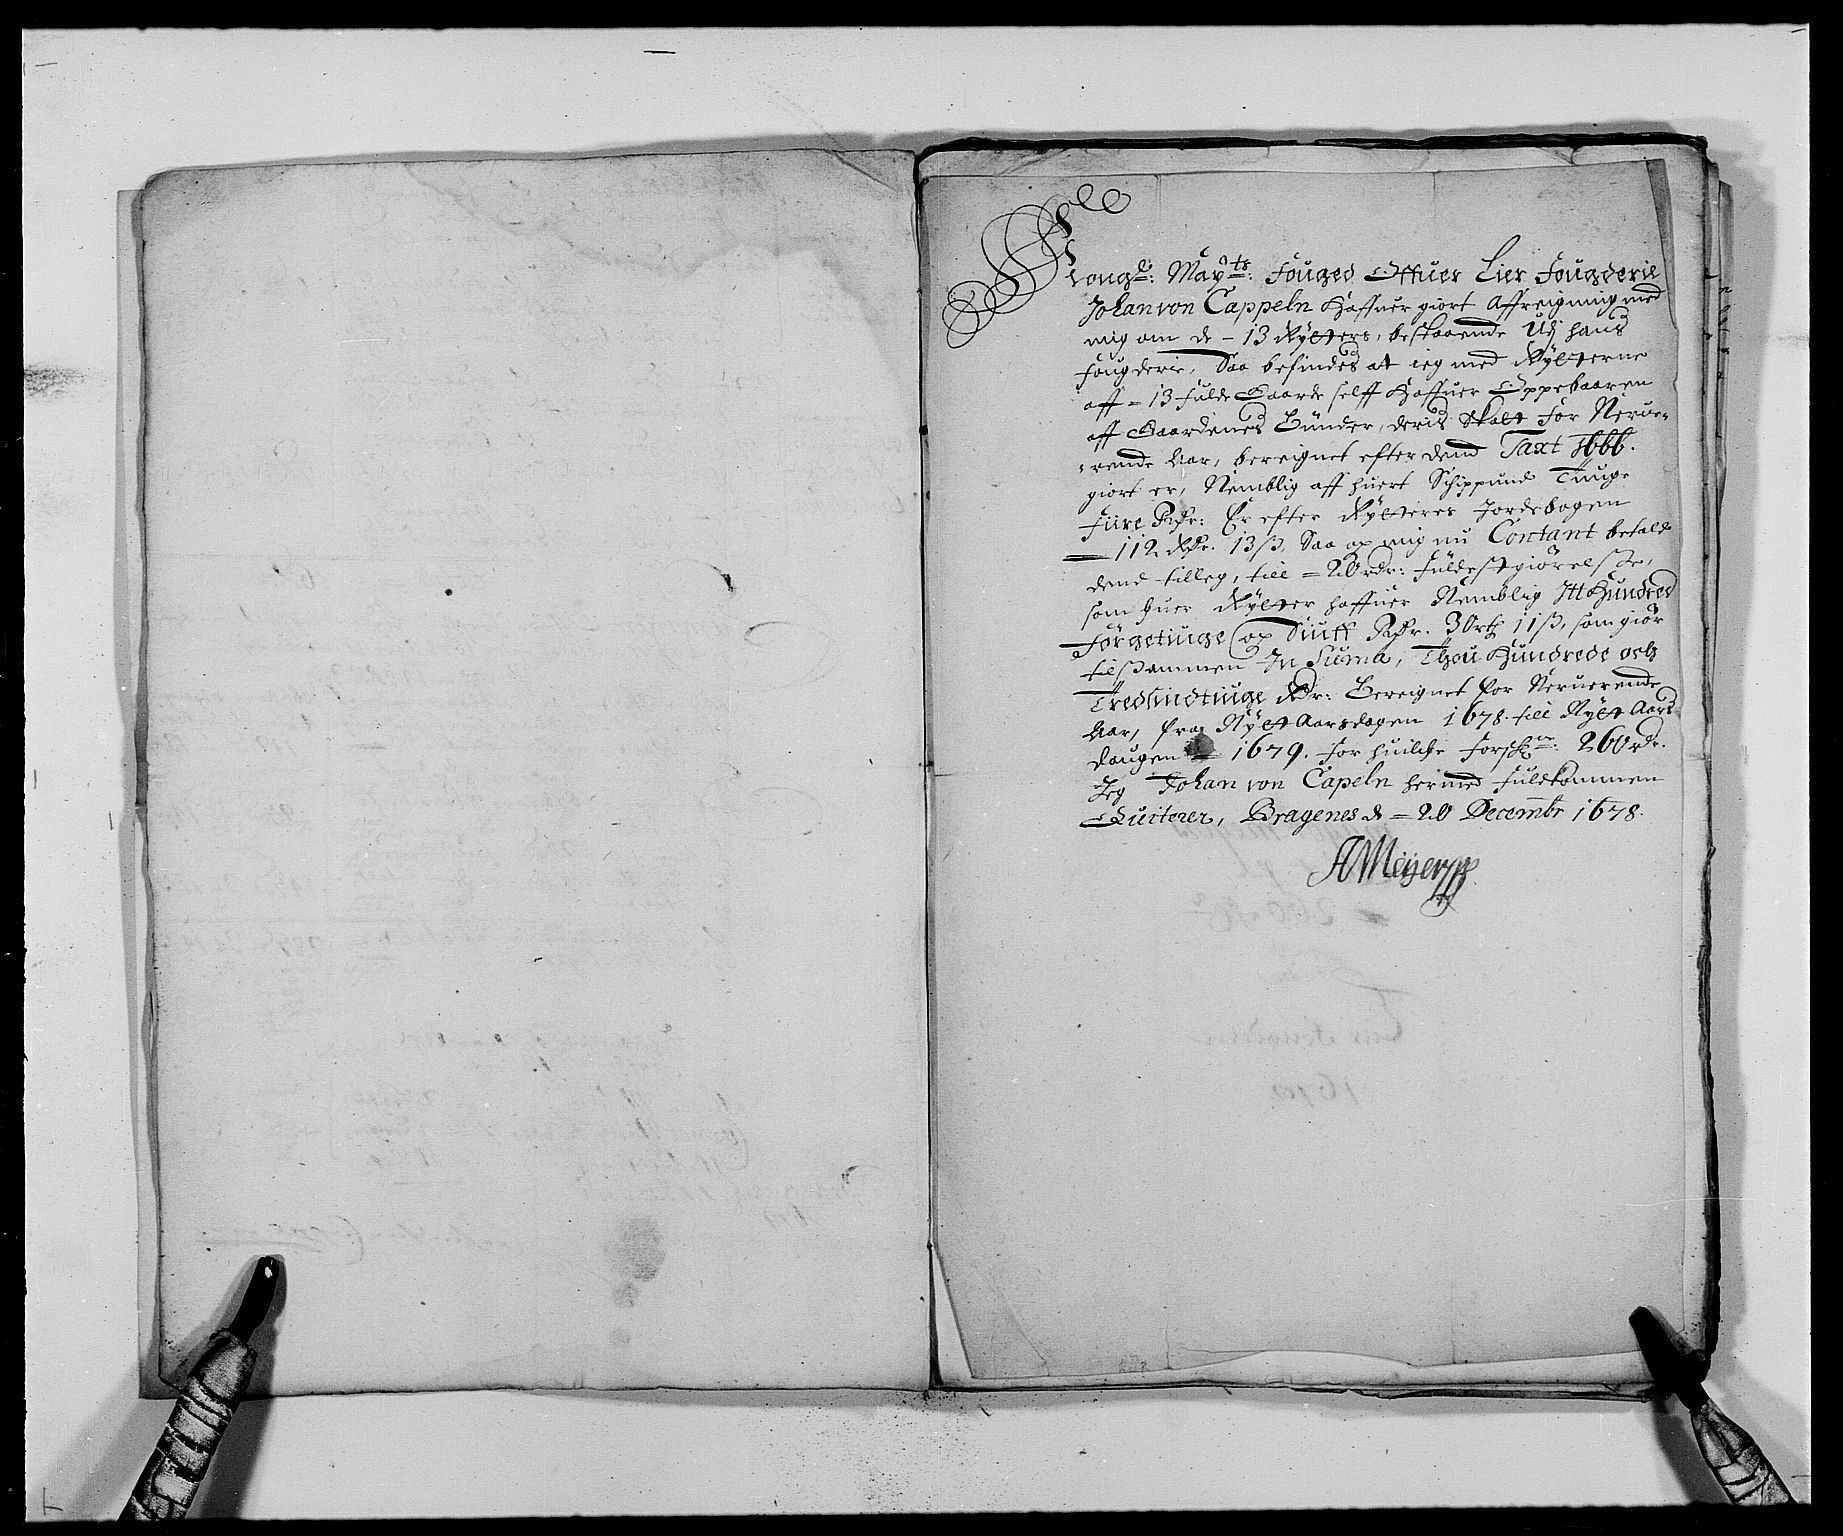 Kongl: Mayts: Fouged Offuer Lier Fougderie
Johan von Cappeln Haffuer giort Affreigning med
mig om de - 13 Rÿttere, bestaaende Udj hans
fougderie, Saa befindes at ieg med Rÿtterne
aff - 13 fulde Gaarde selff Haffuer Oppebaaren
aff Gaardenes Bünder, deris Skatt for Nerue-
-rende Aar, bereignet efter dend Taxt 1666.
giort er, Nemblig aff huert Schippund Tiuge
fiire Rdr: Er efter Rÿtteres Jordebogen
112 Rdr. 13 ß, Saa og mig nu Contant betalt
dend tilleg, till = 20 rdr: fuldestgiørelße,
som huer Rÿtter haffuer Nemblig Itt Hundred
förgetiuge og Siuff Rdr. 3 Ort 11 ß, som giör
tilßammen In Suma, Thou Hundrede och
Tredsindtiuge Rdr: Bereignet for Neruerende
Aar, fra Nÿtt Aarsdagen 1678. till Nÿtt Aars
daugen 1679. for huilche forschne: 260 rdr.
Jeg Johan von Capeln hermed fuldkommen
Quiterer, Bragenes d = 20 Decembr 1678.
AMeÿer